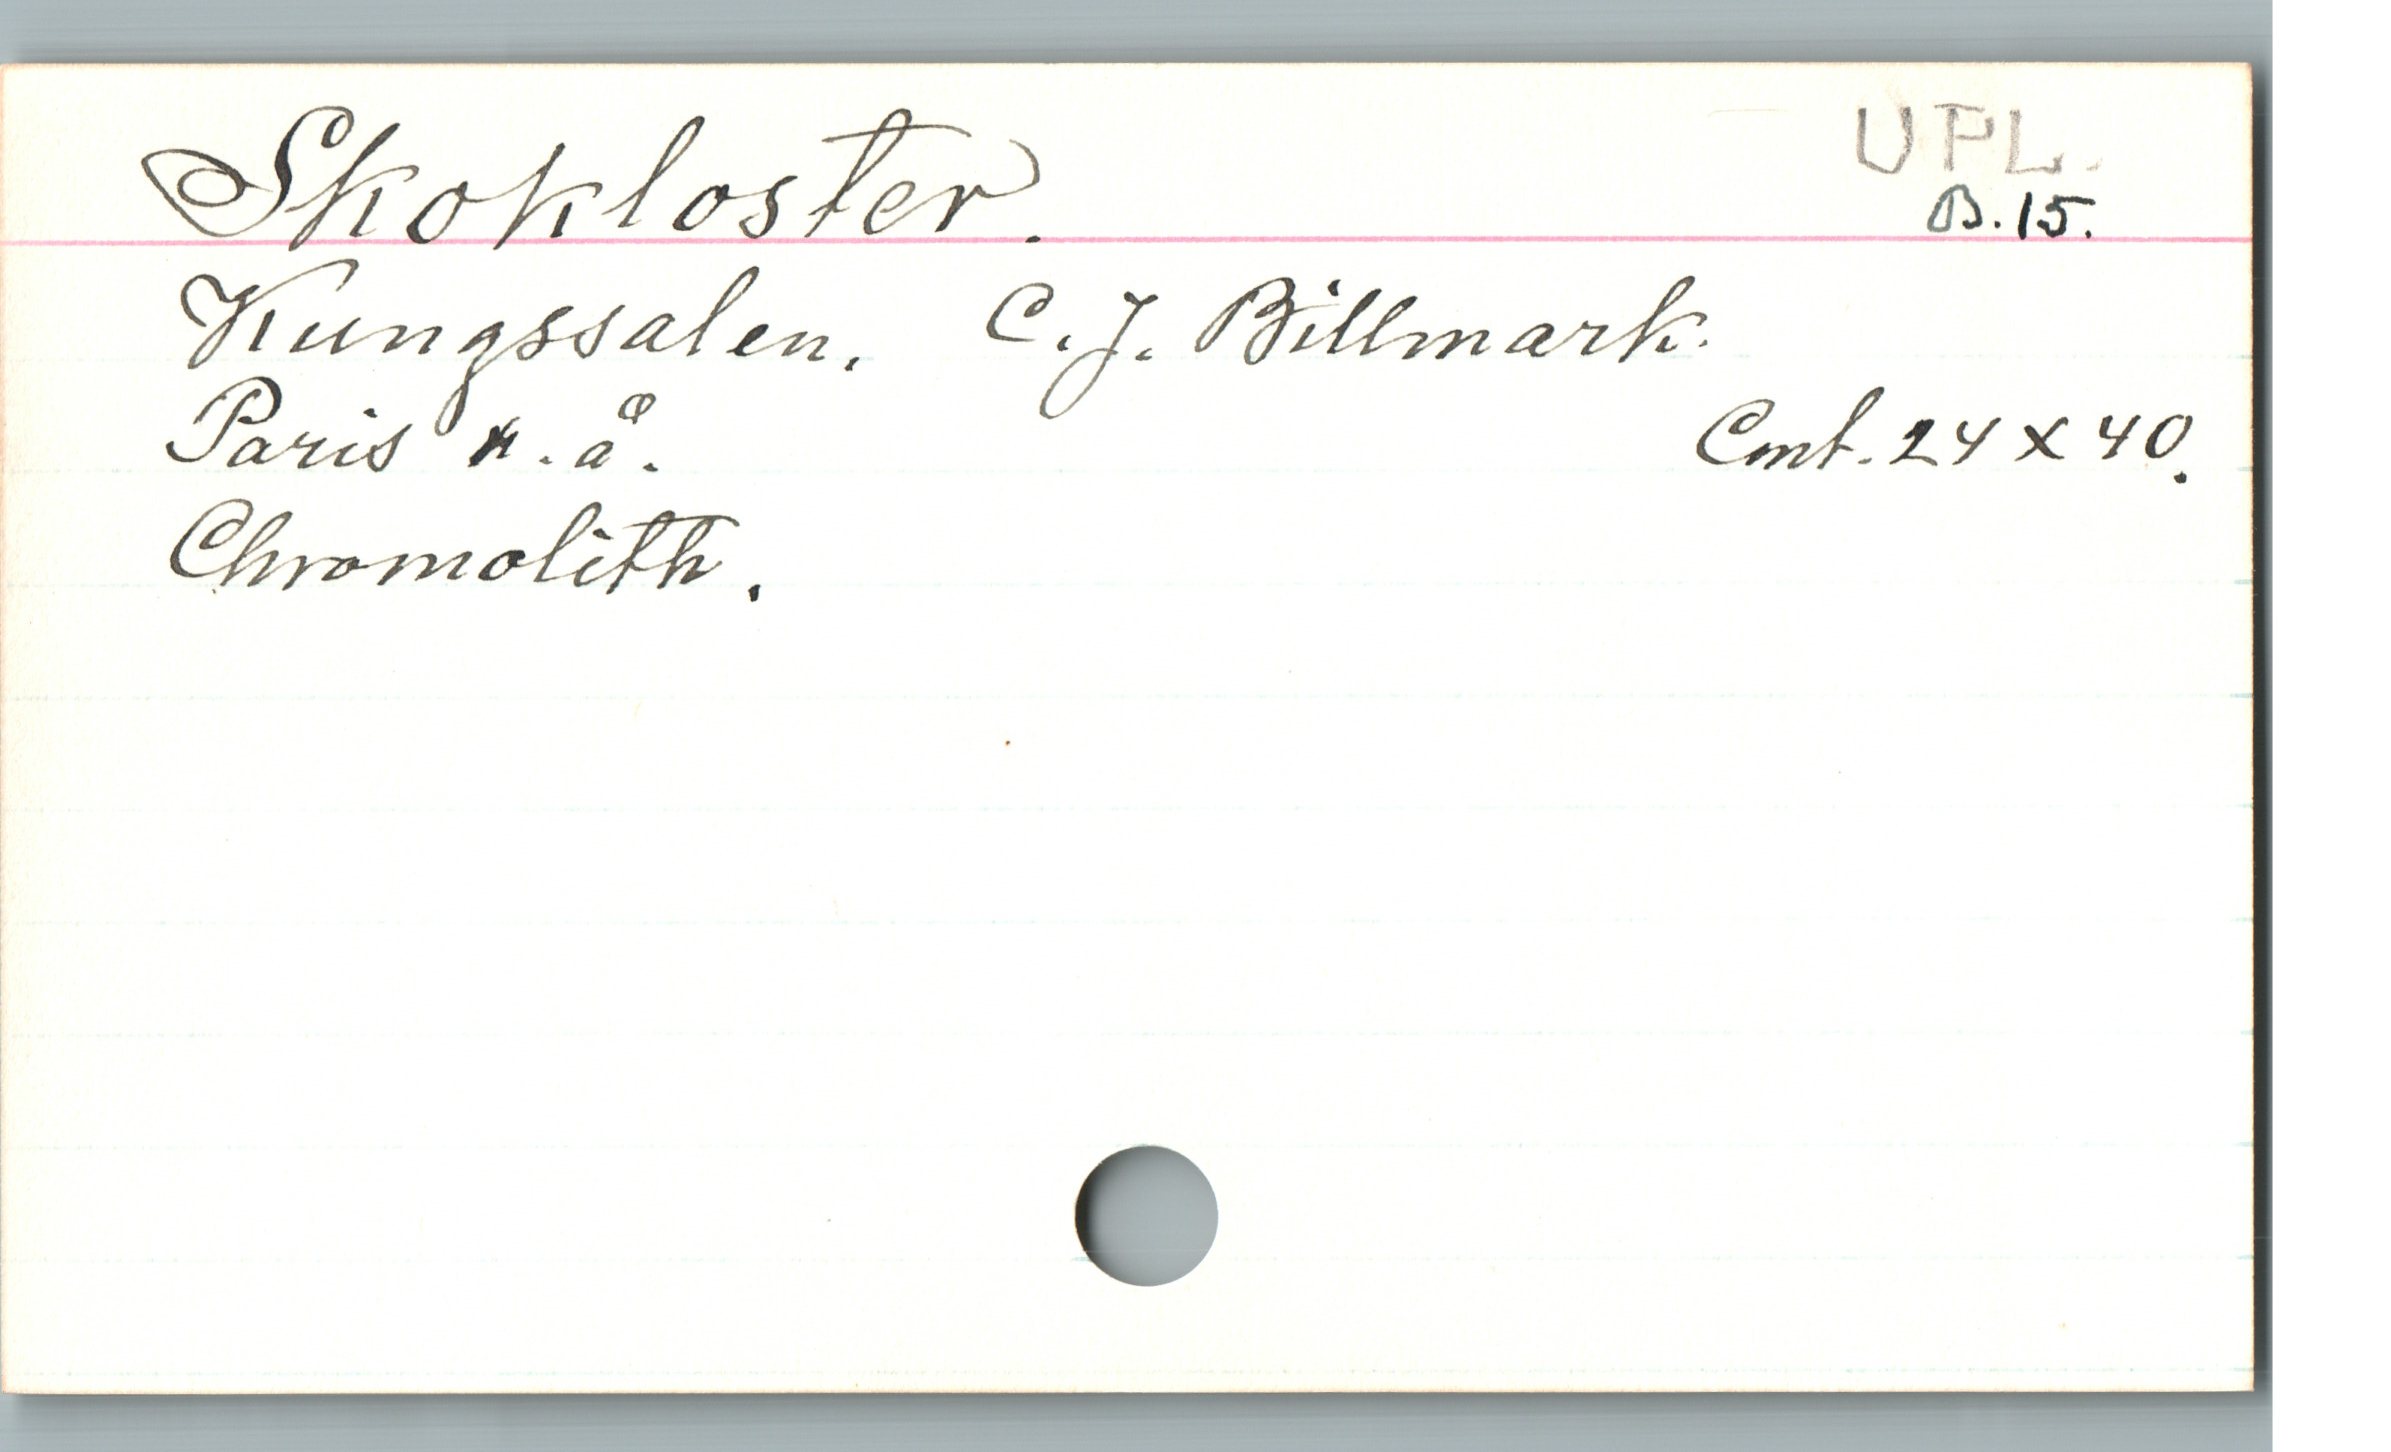 Skokloster.
UPL.
B. 15.
Kungssalen. C. J. Billmark.
Paris n. å.
Cmt. 24 x 40.
Chromolith.